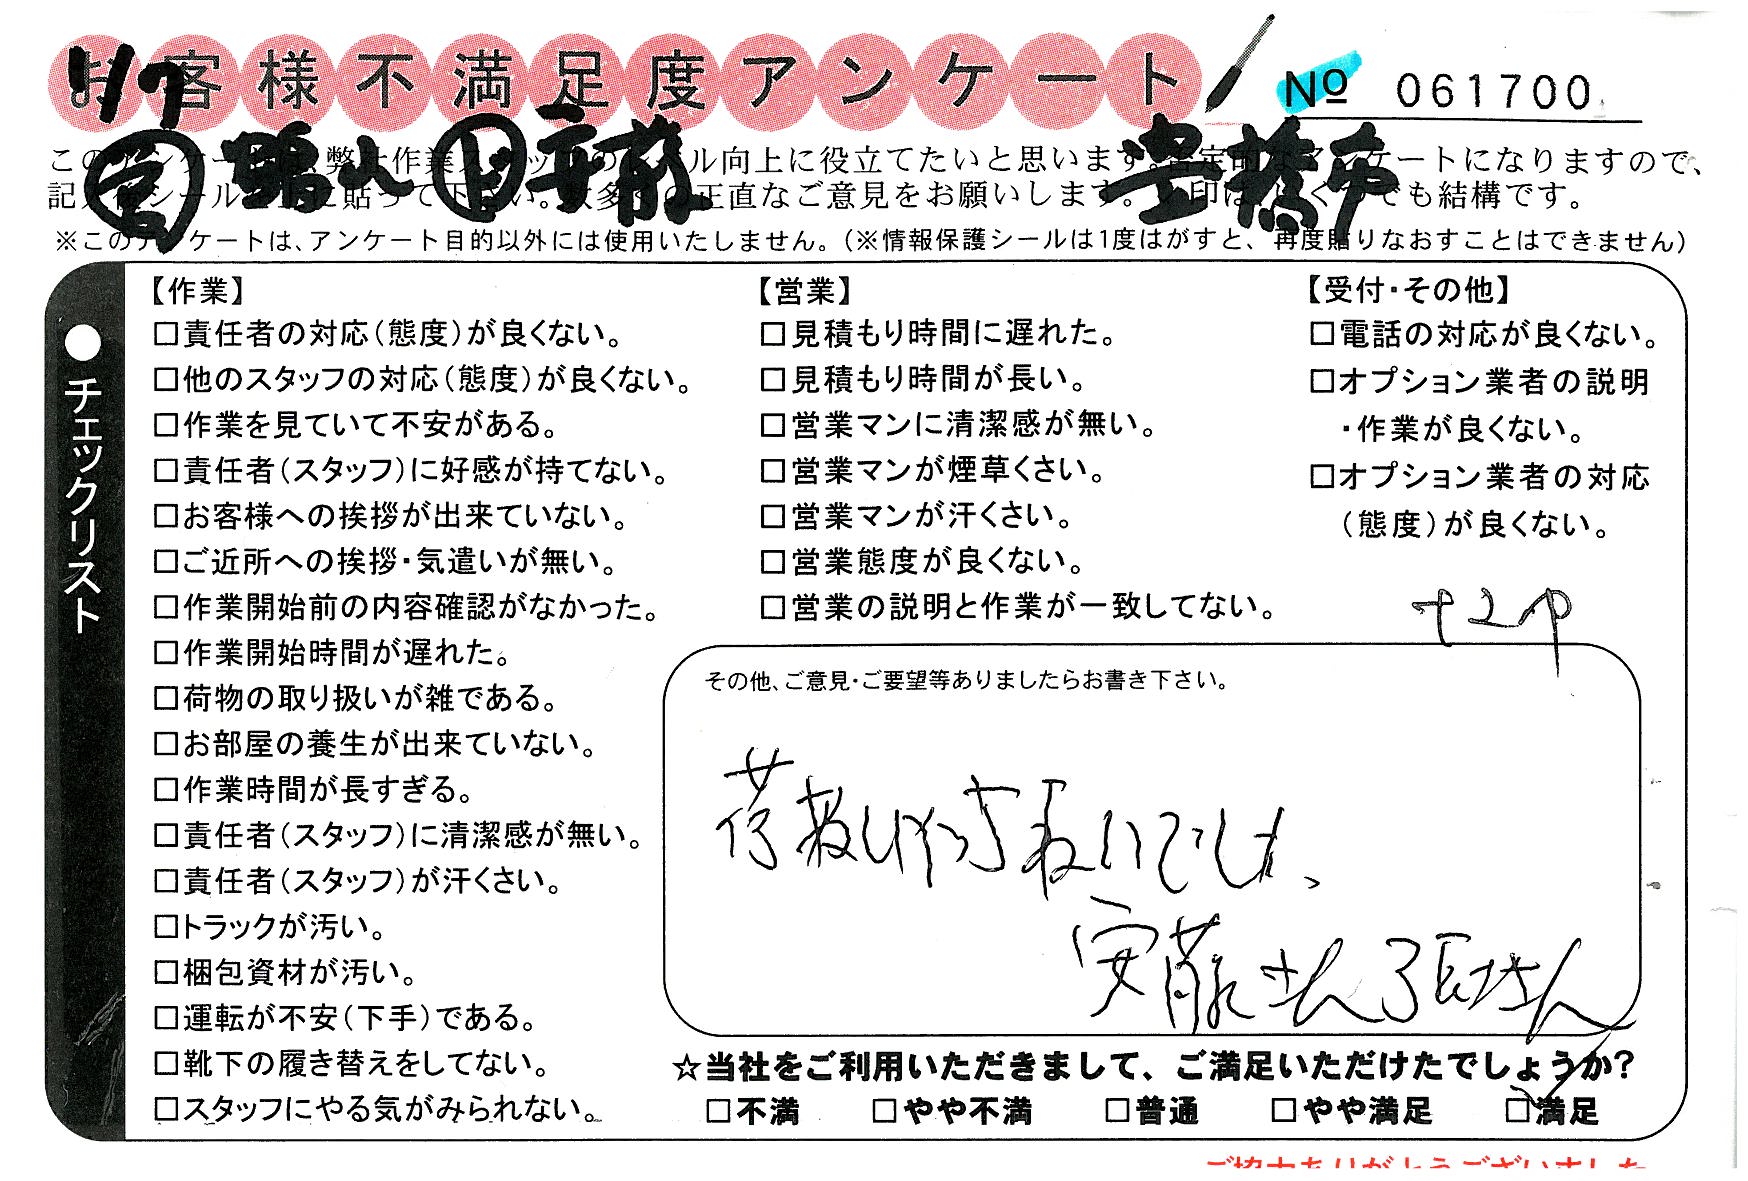 お客様不満足度アンケート
1/7
No 061700
営 鶴山 作 安藤 豊橋市
このアンケートは、弊社作業スタッフのレベル向上に役立てたいと思います。否定的なアンケートになりますので、
記入後シールを上に貼って下さい。数多くの正直なご意見をお願いします。レ印はいくつでも結構です。
※このアンケートは、アンケート目的以外には使用いたしません。(※情報保護シールは1度はがすと、再度貼りなおすことはできません)
●チェックリスト
【作業】
□責任者の対応(態度)が良くない。
□他のスタッフの対応(態度)が良くない。
□作業を見ていて不安がある。
□責任者(スタッフ)に好感が持てない。
□お客様への挨拶が出来ていない。
□ご近所への挨拶・気遣いが無い。
□作業開始前の内容確認がなかった。
□作業開始時間が遅れた。
□荷物の取り扱いが雑である。
□お部屋の養生が出来ていない。
□作業時間が長すぎる。
□責任者(スタッフ)に清潔感が無い。
□責任者(スタッフ)が汗くさい。
□トラックが汚い。
□梱包資材が汚い。
□運転が不安(下手)である。
□靴下の履き替えをしてない。
□スタッフにやる気がみられない。
【営業】
□見積もり時間に遅れた。
□見積もり時間が長い。
□営業マンに清潔感が無い。
□営業マンが煙草くさい。
□営業マンが汗くさい。
□営業態度が良くない。
□営業の説明と作業が一致してない。
【受付・その他】
□電話の対応が良くない。
□オプション業者の説明
・作業が良くない。
□オプション業者の対応
(態度)が良くない。
その他、ご意見・ご要望等ありましたらお書き下さい。
安藤さん
☆当社をご利用いただきまして、ご満足いただけたでしょうか?
□不満 □やや不満 □普通 □やや満足 □満足
ご協力ありがとうございました